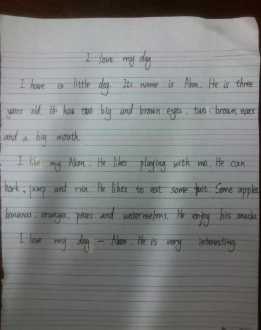 I love my dog
I have a little dog. Its name is Alan. He is three
years old. He has two big and brown eyes, two brown ears
and a big mouth.
I like my Alan. He likes playing with me. He can
bark, jump and run. He likes to eat some fruit. Some apples
bananas, oranges, pears and watermelons. He enjoy his snacks
I love my dog — Alan. He is very interesting